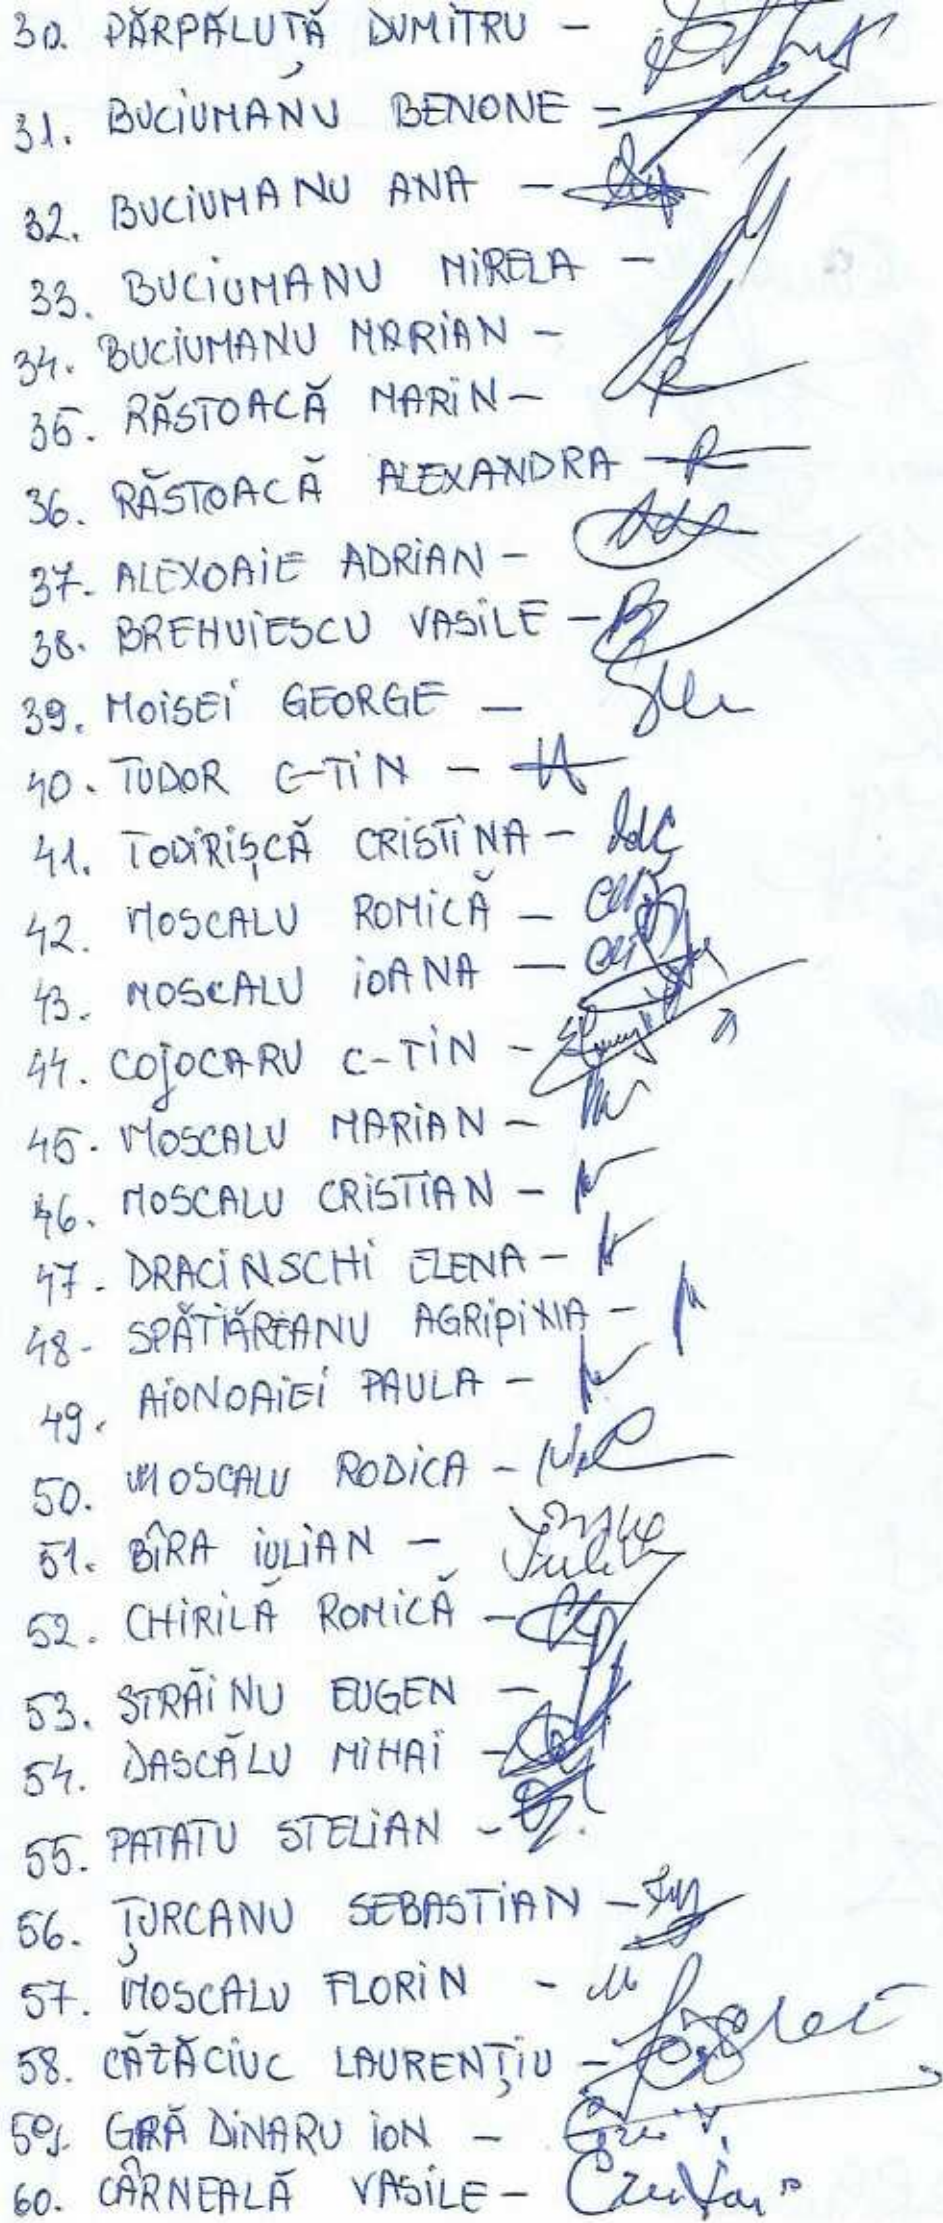 30. PĂRPĂLUȚĂ DUMITRU -
31. BUCIUMANU BENONE -
32. BUCIUMANU ANA -
33. BUCIUMANU MIRELA -
34. BUCIUMANU MARIAN -
35. RĂSTOACĂ MARIN -
36. RĂSTOACĂ ALEXANDRA -
37. ALEXOAIE ADRIAN -
38. BREHUIESCU VASILE -
39. MOISEI GEORGE -
40. TUDOR C-TIN -
41. TODIRIȘCĂ CRISTINA -
42. MOSCALU ROMICĂ -
43. MOSCALU IOANA -
44. COJOCARU C-TIN -
45. MOSCALU MARIAN -
46. MOSCALU CRISTIAN -
47. DRACINSCHI ELENA -
48. SPĂTĂREANU AGRIPINA -
49. AIONOAIEI PAULA -
50. MOSCALU RODICA -
51. BÎRA IULIAN -
52. CHIRILĂ ROMICĂ -
53. STRĂINU EUGEN -
54. DASCĂLU MIHAI -
55. PATATU STELIAN -
56. ȚURCANU SEBASTIAN -
57. MOSCALU FLORIN -
58. LAURENȚIU -
59. GRĂDINARU ION -
60. CÂRNEALĂ VASILE -